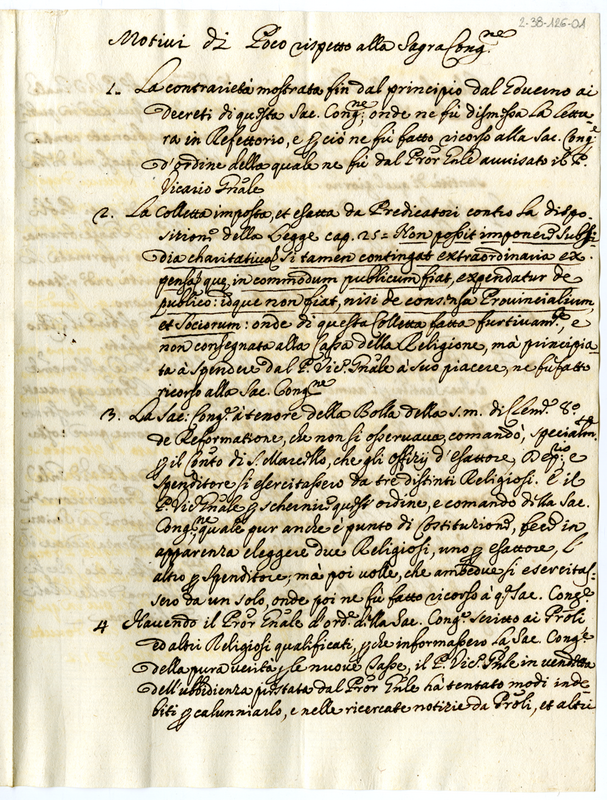 2-38-126-01
Motivi di Poco rispetto alla Sagra Cong.ne
1. La contrarietà mostrata fin dal principio dal Governo ai
Decreti di questa Sac. Cong.ne, onde ne fù dismessa la Lettu
ra in Refettorio, e p ciò ne fù fatto ricorso alla Sac. Cong.e
d'ordine della quale ne fù dal Pror Gnle avvisato il P.
Vicario Gnale
2. La Colletta imposta, et esatta da Predicatori contro la dispo-
sizione della Legge cap. 25 = Non possit imponere Subsi
dia charitativa, Si tamen contingat extraordinaria ex-
pensa, que in commodum publicum fiat, expendatur de
publico: idque non fiat, nisi de consensu Provincialium,
et Sociorum: onde di questa Colletta fatta furtivam.te, e
non consegnata alla Cassa della Religione, mà principia-
ta à spendere dal P. Vic.o Gnale à suo piacere, ne fù fatto
ricorso alla Sac. Cong.ne
3. La Sac. Cong.e à tenore della Bolla della s.m. di Clem.e 8.o
de Reformatione, che non si osservava, comandò, specialm.te
p il Con.to di S. Marcello, che gli offizij d'esattore, Dep.rio, e
Spenditore si esercitassero da trè distinti Religiosi. E il
P. Vic. Gnale p schernire quest'ordine, e comando della Sac.
Cong.ne, quale pur anche è punto di Costituzione, feed in
apparenza eleggere due Religiosi, uno p esattore, l'
altro p spenditore; mà poi volle, che ambedue si esercitas-
sero da un solo, onde poi ne fù fatto ricorso à q.sa Sac. Cong.e
4 Havendo il Pror Gnale d'ord.e d.lla Sac. Cong.e scritto ai Prõli
ed altri Religiosi qualificati, p che informassero la Sac. Cong.e
della pura verità p le nuove Tasse, il P. Vic. Gnle in vendetta
dell'ubbidienza prestata dal Pror Gnle hà tentato modi inde-
biti p calunniarlo, e nelle ricercate notizie da Prõli, et altri